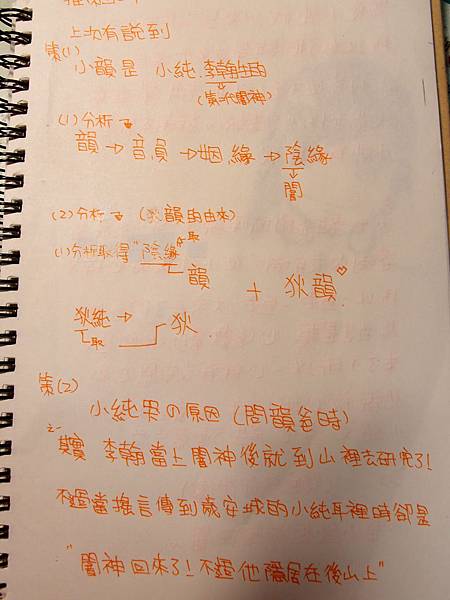 上次有說到
第(1)
小韻是 小純.李翰生的
(第一代闇神)
(1)分析
韻→音員→姻緣→陰緣
闇
(2)分析 (狄韻的由來)
(1)分析取得"陰緣 取
韻 + 狄韻
狄純→ 狄
取
第(2)
小純哭の原因(問韻爸時)
之一
其實 李翰當上闇神後就到山裡去研究了!
不過當搖言傳到歲安城的小純耳裡時卻是
"闇神回來了!不過他隱居在後山上"